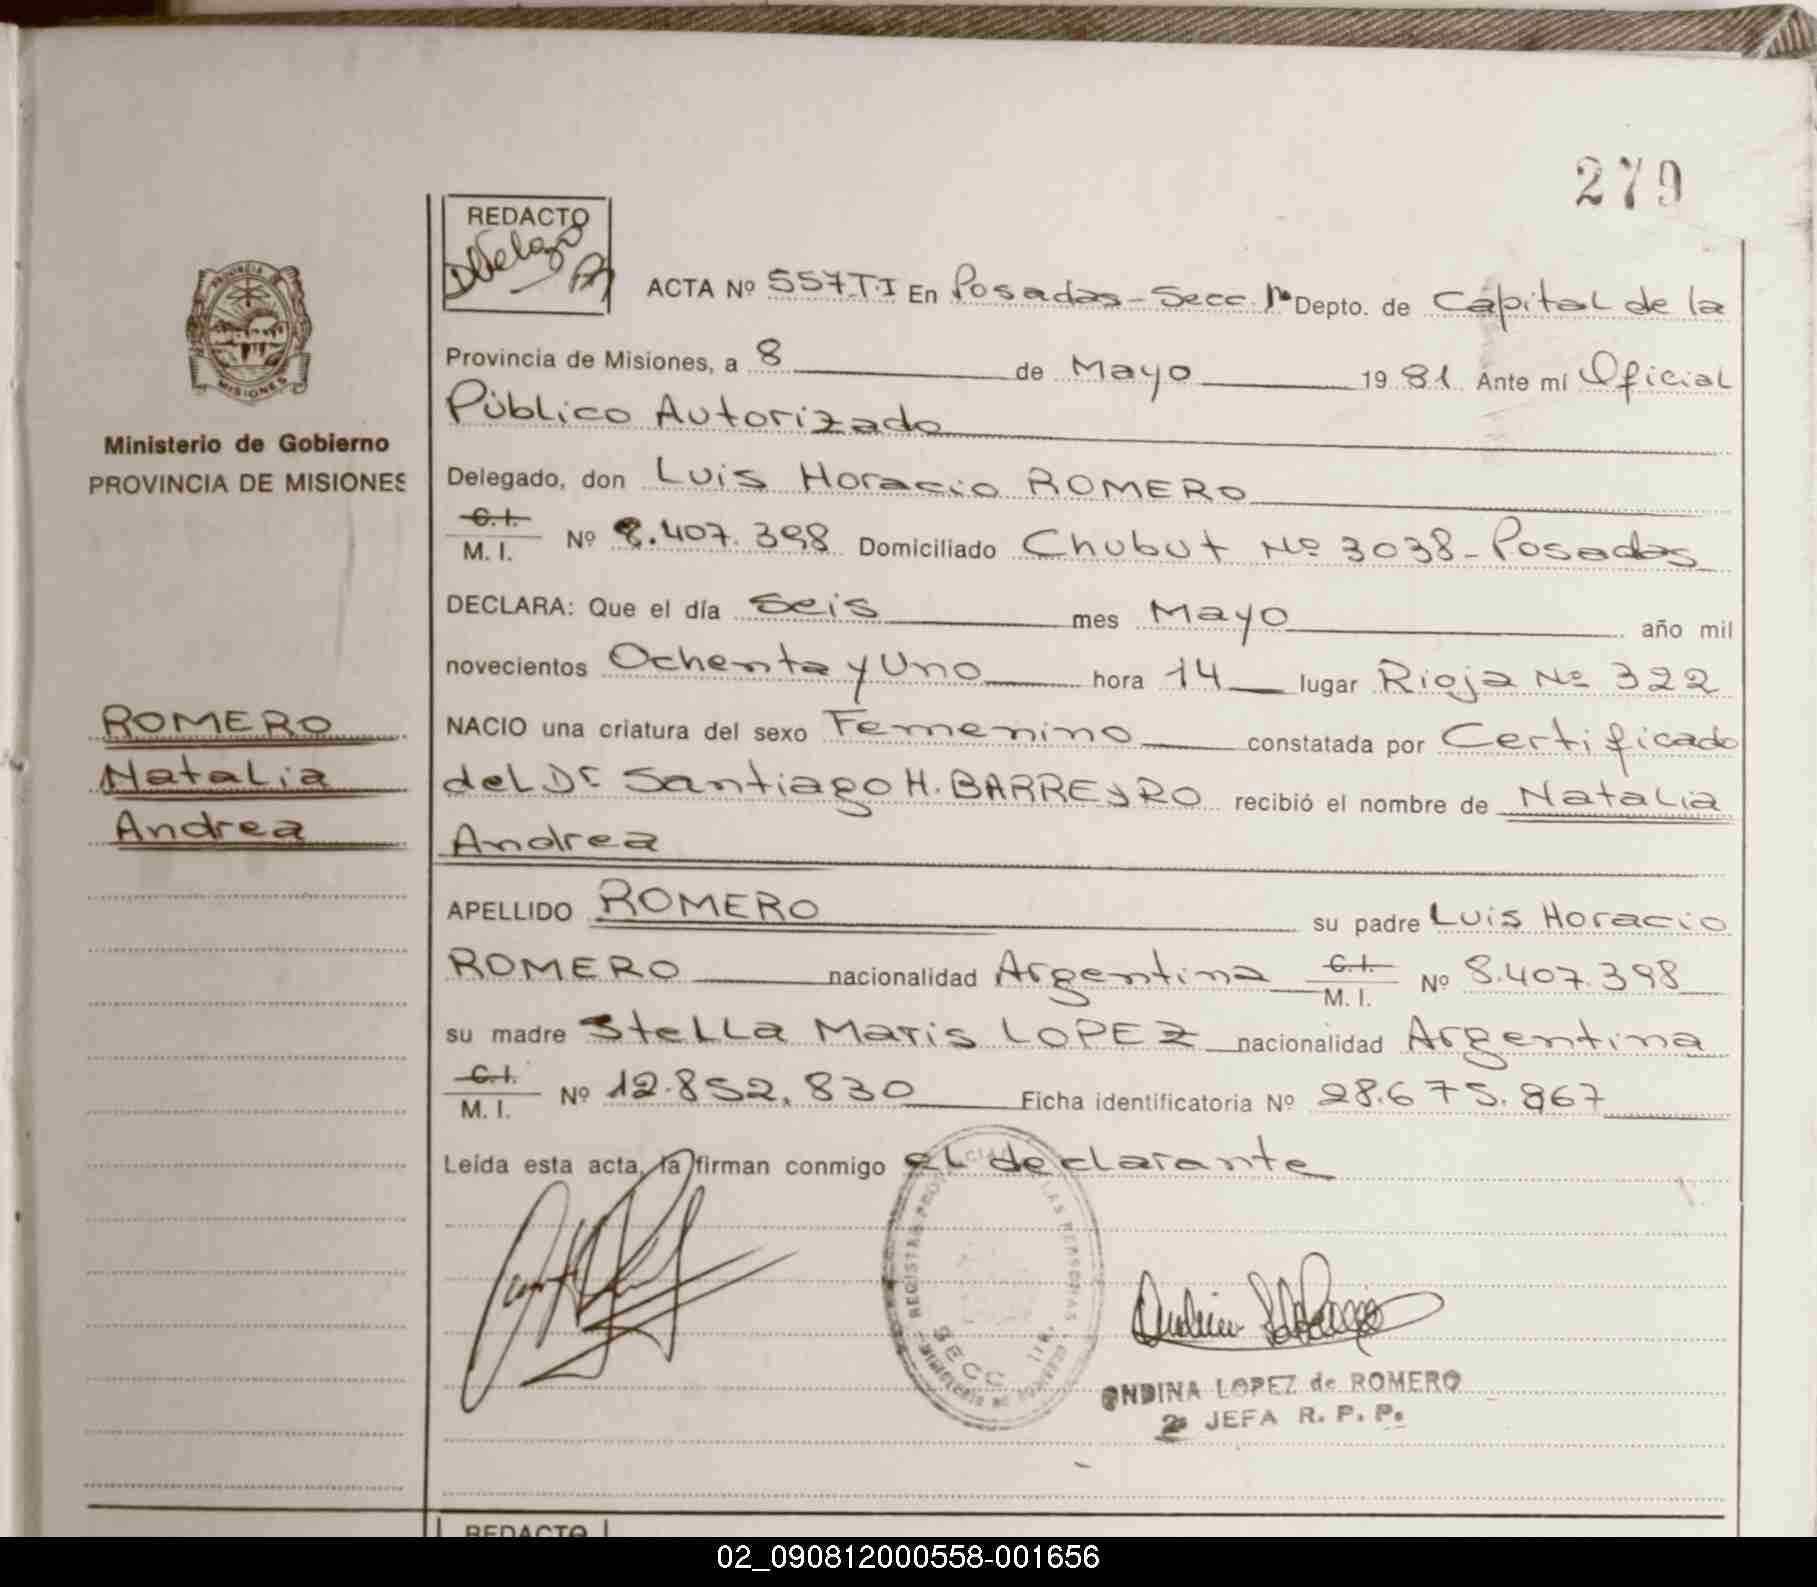 279
REDACTO
ACTA Nº 557 T·I En Posadas - Secc. 1ª Depto. de Capital de la
Provincia de Misiones, a 8 de Mayo 19 81 Ante mí Oficial
Público Autorizado
Delegado, don Luis Horacio ROMERO
C. I.
M. I. Nº 8.407.398 Domiciliado Chubut Nº 3038 - Posadas
DECLARA: Que el día Seis mes Mayo año mil
novecientos Ochenta y Uno hora 14 lugar Rioja Nº 322
NACIO una criatura del sexo Femenino constatada por Certificado
del Dr Santiago H. BARREYRO recibió el nombre de Natalia
Andrea
APELLIDO ROMERO su padre Luis Horacio
ROMERO nacionalidad Argentina C. I. M. I. Nº 8.407.398
su madre Stella Maris LOPEZ nacionalidad Argentina
C. I.
M. I. Nº 12.852.830 Ficha identificatoria Nº 28.675.867
Leída esta acta, la firman conmigo el declarante
ONDINA LOPEZ de ROMERO
2ª JEFA R. P. P.
SECC. 1ra.
Ministerio de Gobierno
PROVINCIA DE MISIONES
ROMERO
Natalia
Andrea
REDACTO
02_090812000558-001656